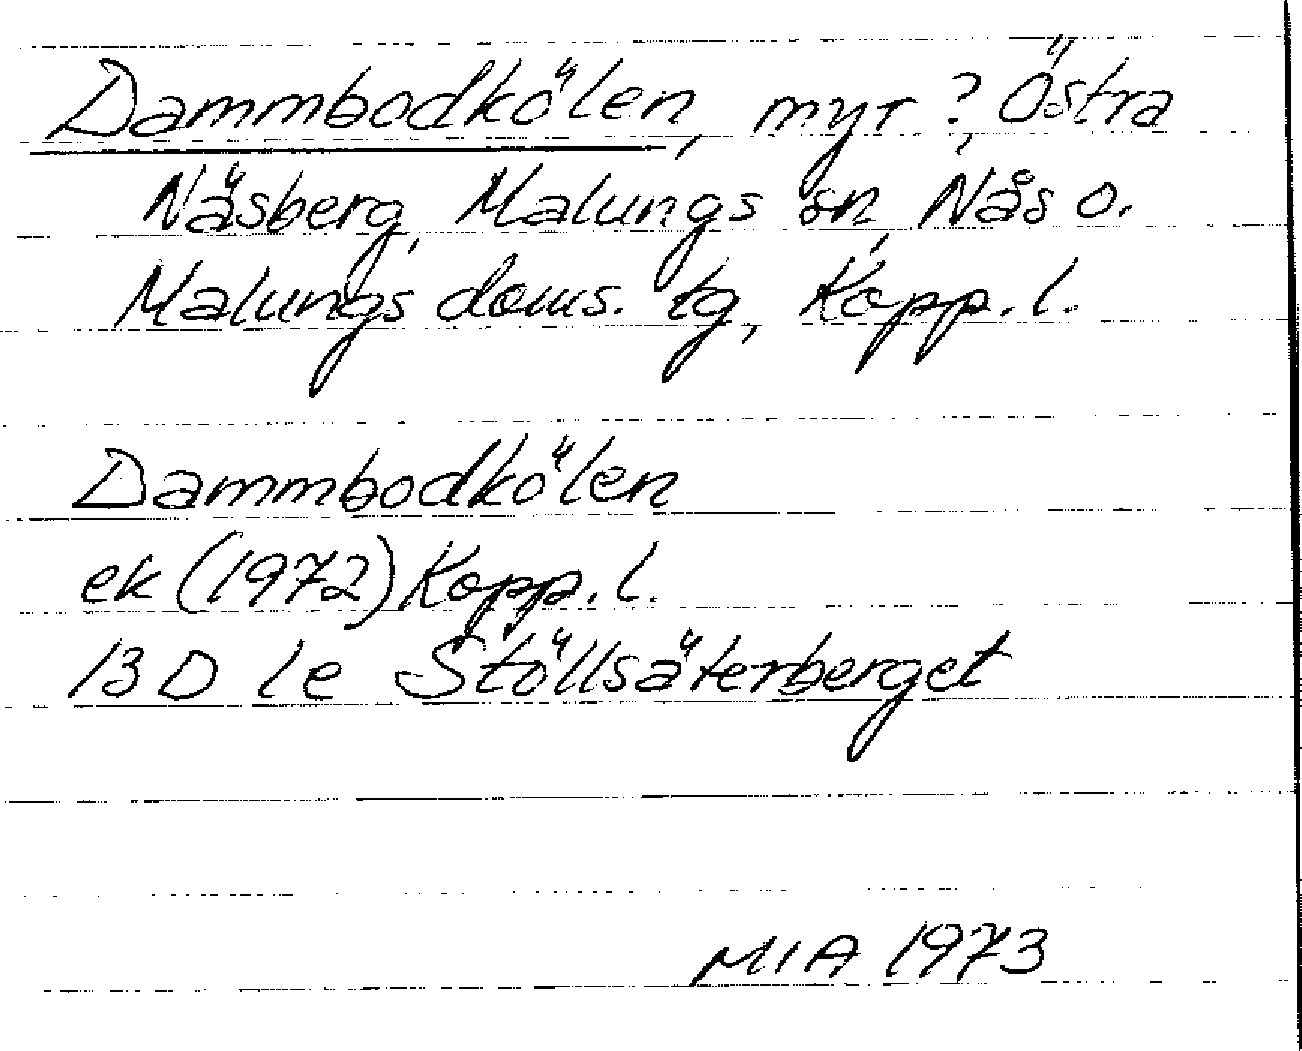 Dammbodkölen, myr?, Östra
Näsberg, Malungs sn, Nås o.
Malungs doms. tg, Kopp. l.
Dammbodkölen
ek (1972) Kopp. l.
13 D 1e Stöllsäterberget
MIA 1973